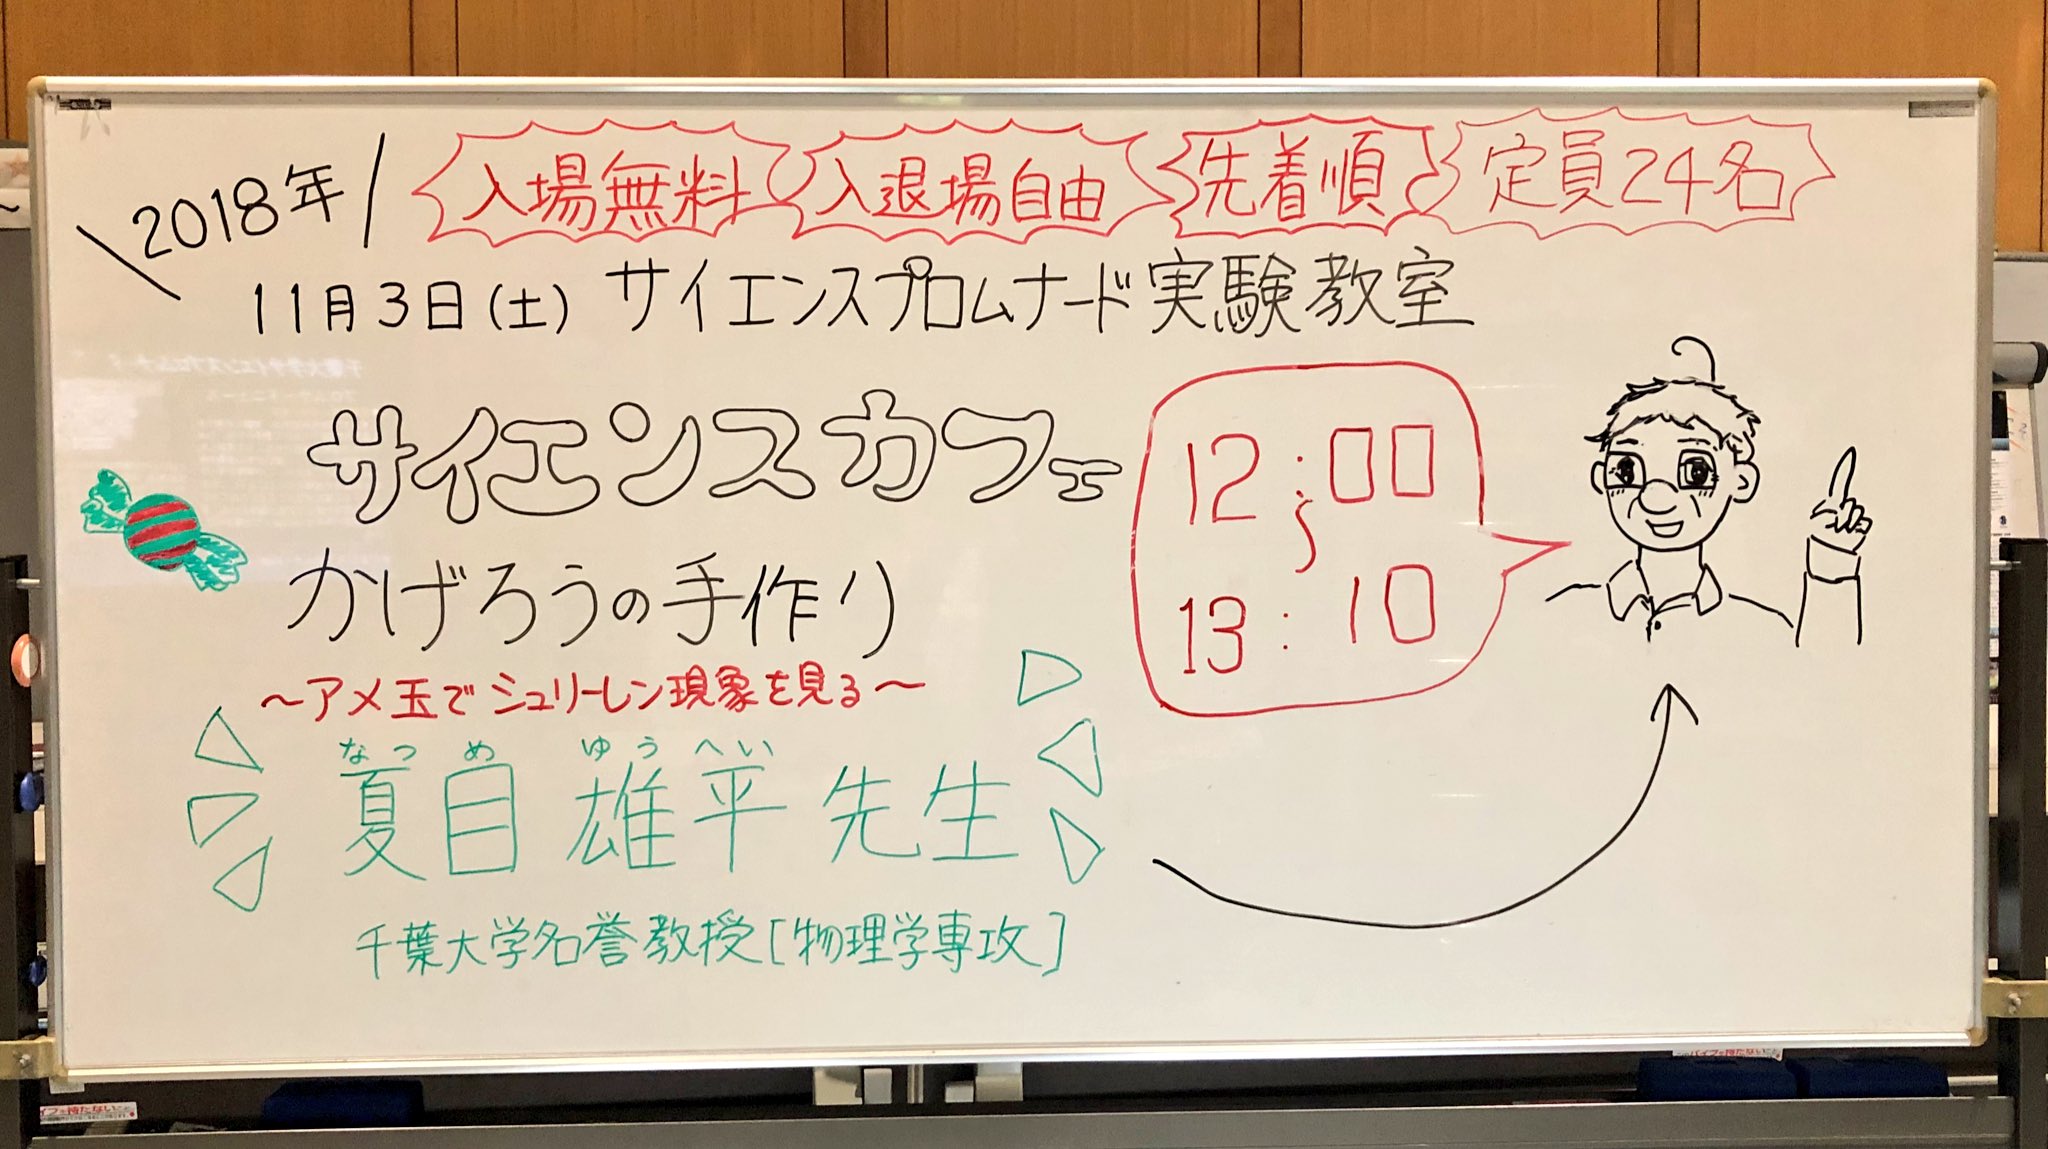 2018年
入場無料 入退場自由 先着順 定員24名
11月3日(土) サイエンスプロムナード実験教室
サイエンスカフェ
12:00
〜
13:10
かげろうの手作り
〜アメ玉でシュリーレン現象を見る〜
なつ め ゆう へい
夏目 雄平 先生
千葉大学名誉教授[物理学専攻]